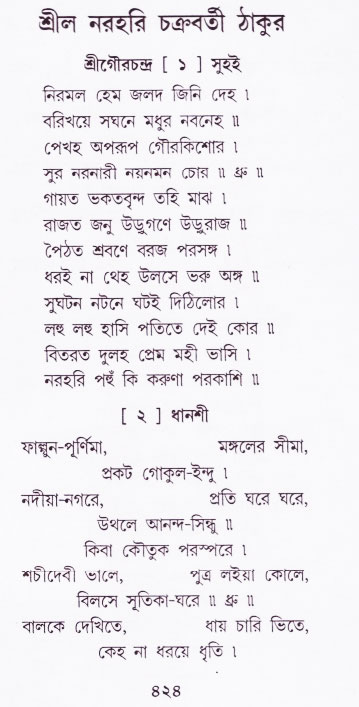 শ্রীল নরহরি চক্রবর্তী ঠাকুর
শ্রীগৌরচন্দ্র [ ১ ] সুহই
নিরমল হেম জলদ জিনি দেহ ।
বরিখয়ে সঘনে মধুর নবনেহ ॥
পেখহ অপরূপ গৌরকিশোর ।
সুর নরনারী নয়নমন চোর ॥ ধ্রু ॥
গায়ত ভকতবৃন্দ তহি মাঝ ।
রাজত জনু উড়ুগণে উড়ুরাজ ॥
পৈঠত শ্রবণে বরজ পরসঙ্গ ।
ধরই না থেহ উলসে ভরু অঙ্গ ॥
সুঘটন নটনে ঘটই দিঠিলোর ।
লহু লহু হাসি পতিতে দেই কোর ॥
বিতরত দুলহ প্রেম মহী ভাসি ।
নরহরি পহুঁ কি করুণা পরকাশি ॥
[ ২ ] ধানশী
ফাল্গুন-পূর্ণিমা, মঙ্গলের সীমা,
প্রকট গোকুল-ইন্দু ।
নদীয়া-নগরে, প্রতি ঘরে ঘরে,
উথলে আনন্দ-সিন্ধু ॥
কিবা কৌতুক পরস্পরে ।
শচীদেবী ভালে, পুত্র লইয়া কোলে,
বিলসে সূতিকা-ঘরে ॥ ধ্রু ॥
বালকে দেখিতে, ধায় চারি ভিতে,
কেহ না ধরয়ে ধৃতি ।
৪২৪